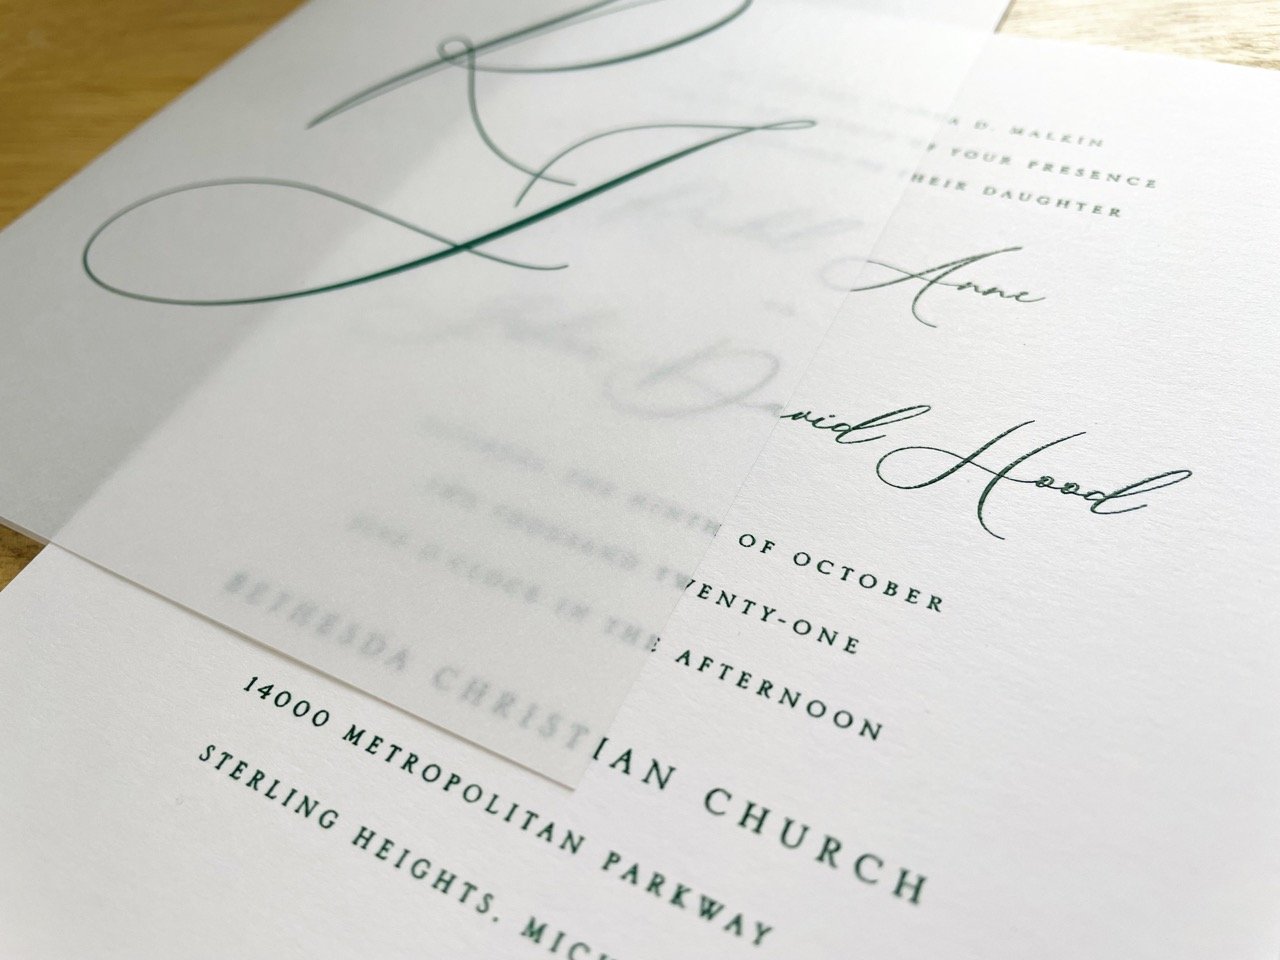 R
J
D. MALKIN
OF YOUR PRESENCE
THEIR DAUGHTER
Anne
David Hood
THE NINTH OF OCTOBER
TWO THOUSAND TWENTY-ONE
O'CLOCK IN THE AFTERNOON
BETHESDA CHRISTIAN CHURCH
14000 METROPOLITAN PARKWAY
STERLING HEIGHTS, MICH